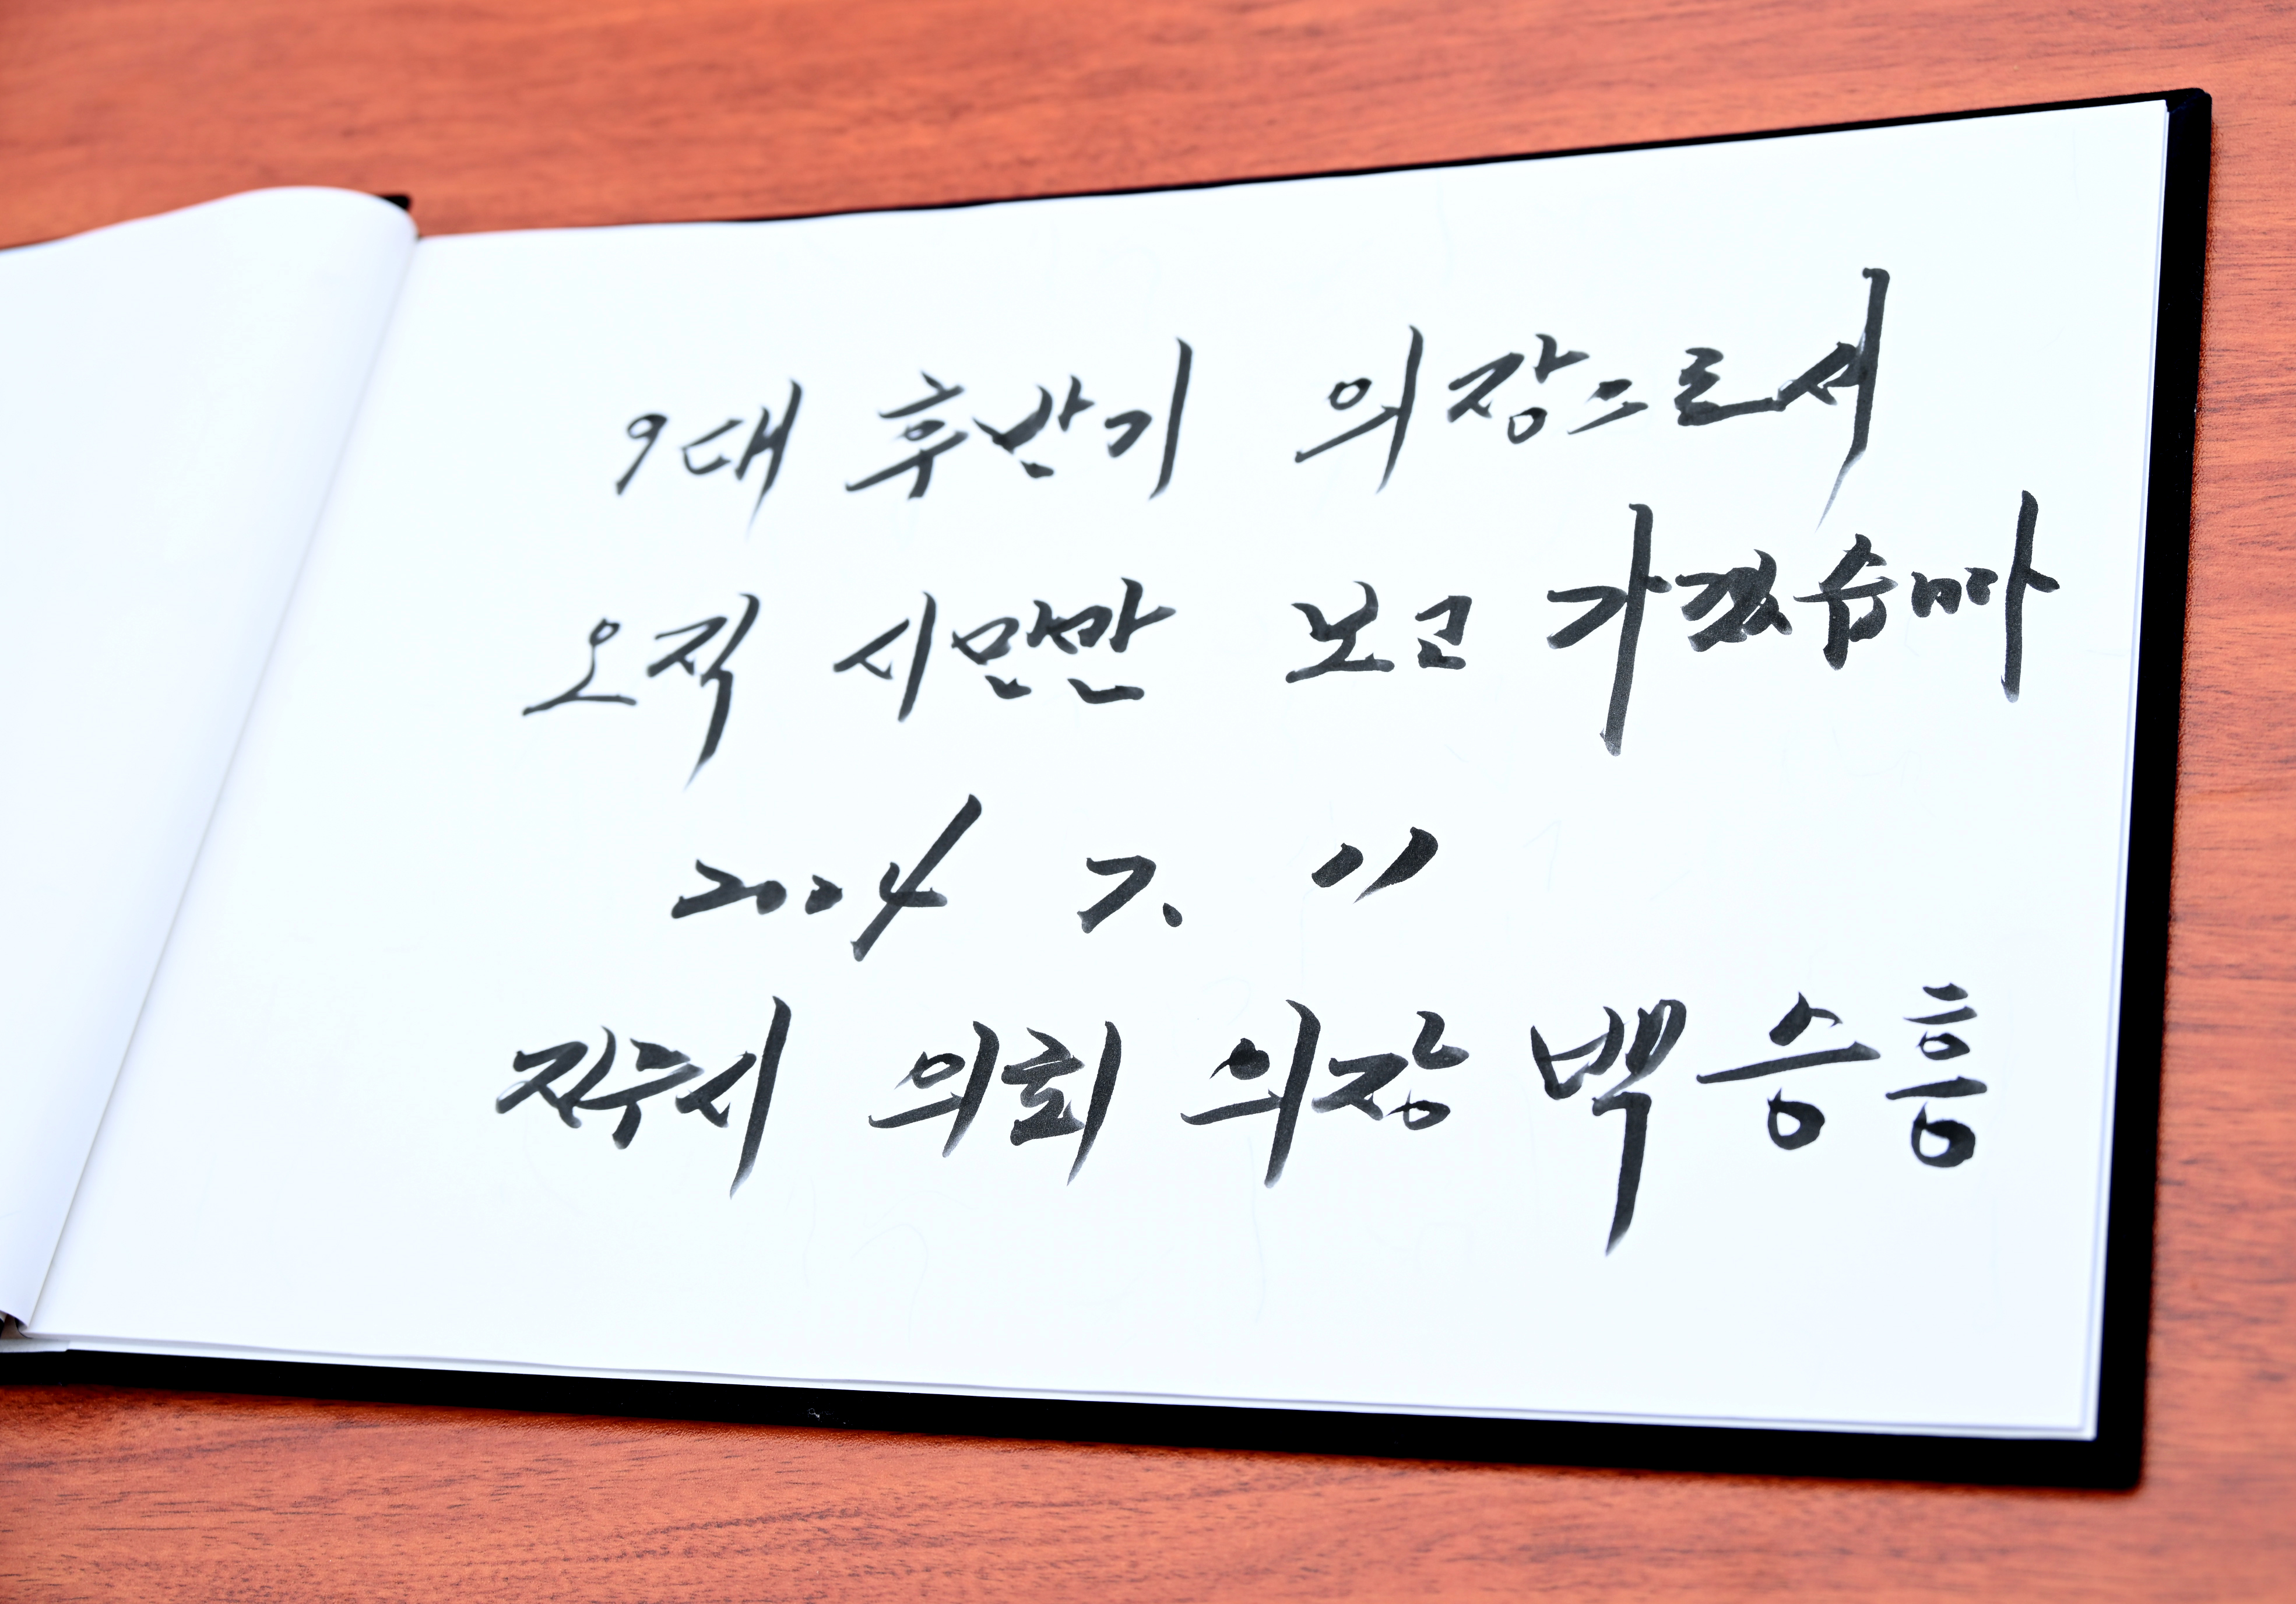 9대 후반기 의장으로서
오직 시민만 보고 가겠습니다
2024 7. 11
진주시 의회 의장 백승흥